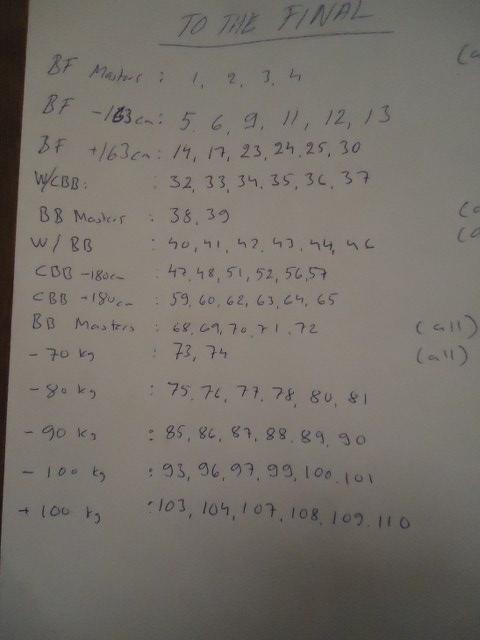 TO THE FINAL
BF Masters : 1, 2, 3, 4
BF -163cm : 5, 6, 9, 11, 12, 13
BF +163cm : 14, 17, 23, 24, 25, 30
W/CBB : 32, 33, 34, 35, 36, 37
BB Masters : 38, 39
W/BB : 40, 41, 42, 43, 44, 46
CBB -180cm : 47, 48, 51, 52, 56, 57
CBB +180cm : 59, 60, 62, 63, 64, 65
BB Masters : 68, 69, 70, 71, 72 (all)
- 70 kg : 73, 74 (all)
- 80 kg : 75, 76, 77, 78, 80, 81
- 90 kg : 85, 86, 87, 88, 89, 90
- 100 kg : 93, 96, 97, 99, 100, 101
+ 100 kg : 103, 104, 107, 108, 109, 110